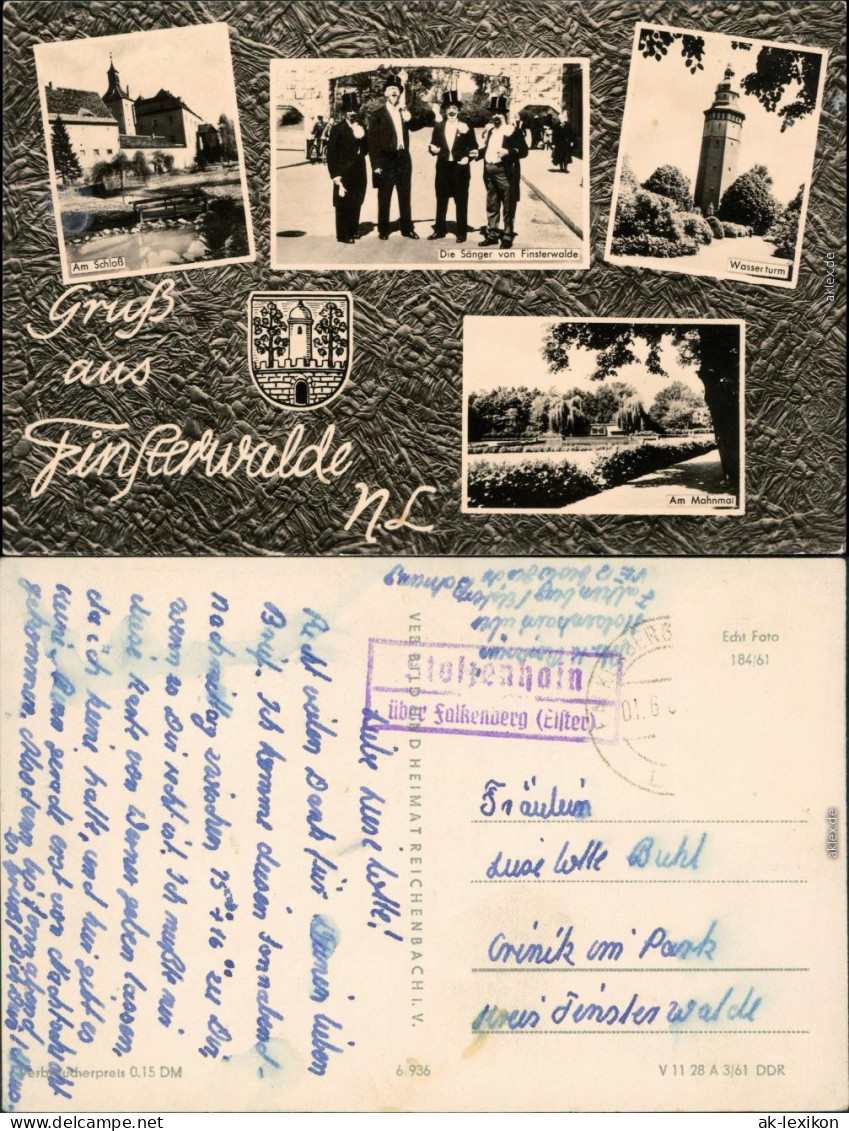 Am Schloß
Die Sänger von Finsterwalde
Wasserturm
Gruß
aus
Finsterwalde
N.L.
Am Mahnmal
aklex.de
Echt Foto
184/61
VEB BILD UND HEIMAT REICHENBACH I. V.
Stolzenhain
über Falkenberg (Elster)
01.6
Holzenhain über
Falkenberg/Elster
Liebe Liese Lotte!
Recht vielen Dank für Deinen lieben
Brief. Ich komme diesen Sonnabend-
Nachmittag zwischen 15°° + 16°° zu Dir,
wenn es Dir recht ist. Ich mußte mir
diese Karte von Werner geben lassen,
da ich keine hatte, und hier gibt es
keine. Bin gerade erst von Nachtschicht
gekommen.
Fräulein
Liese Lotte Buhl
Crinitz im Park
Kreis Finsterwalde
Verbraucherpreis 0.15 DM
6/936
V 11 28 A 3/61 DDR
aklex.de
www.delcampe.net
ak-lexikon